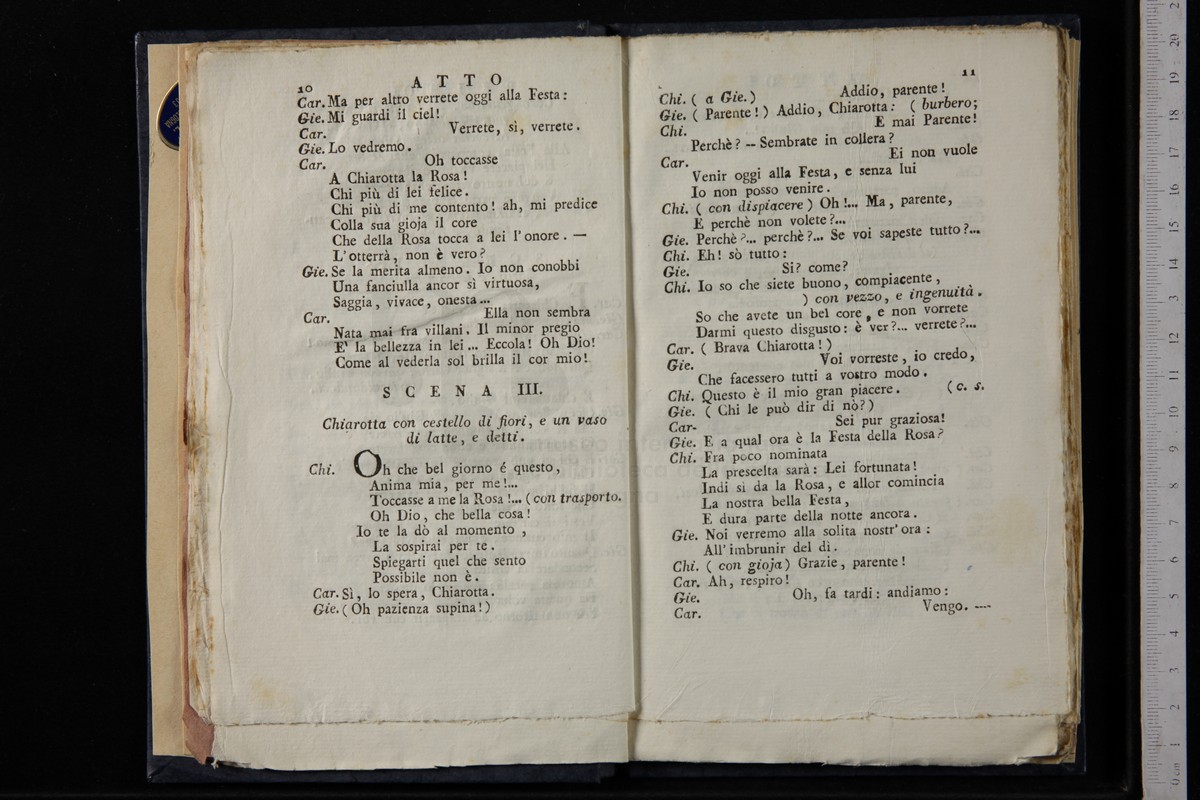 10
A T T O
Car. Ma per altro verrete oggi alla Festa:
Gie. Mi guardi il ciel!
Car. Verrete, sì, verrete.
Gie. Lo vedremo.
Car. Oh toccasse
A Chiarotta la Rosa!
Chi più di lei felice.
Chi più di me contento! ah, mi predice
Colla sua gioja il core
Che della Rosa tocca a lei l'onore. —
L'otterrà, non è vero?
Gie. Se la merita almeno. Io non conobbi
Una fanciulla ancor sì virtuosa,
Saggia, vivace, onesta...
Car. Ella non sembra
Nata mai fra villani. Il minor pregio
E' la bellezza in lei... Eccola! Oh Dio!
Come al vederla sol brilla il cor mio!
S C E N A III.
Chiarotta con cestello di fiori, e un vaso
di latte, e detti.
Chi. Oh che bel giorno é questo,
Anima mia, per me!...
Toccasse a me la Rosa!... (con trasporto.
Oh Dio, che bella cosa!
Io te la dò al momento,
La sospirai per te.
Spiegarti quel che sento
Possibile non è.
Car. Sì, lo spera, Chiarotta.
Gie. (Oh pazienza supina!)
11
Chi. (a Gie.) Addio, parente!
Gie. (Parente!) Addio, Chiarotta: (burbero;
Chi. E mai Parente!
Perchè? -- Sembrate in collera?
Car. Ei non vuole
Venir oggi alla Festa, e senza lui
Io non posso venire.
Chi. (con dispiacere) Oh!... Ma, parente,
E perchè non volete?...
Gie. Perchè?... perchè?... Se voi sapeste tutto?...
Chi. Eh! sò tutto:
Gie. Si? come?
Chi. Io so che siete buono, compiacente,
) con vezzo, e ingenuità.
So che avete un bel core, e non vorrete
Darmi questo disgusto: è ver?... verrete?...
Car. (Brava Chiarotta!)
Gie. Voi vorreste, io credo,
Che facessero tutti a vostro modo.
Chi. Questo è il mio gran piacere. (c. s.
Gie. (Chi le può dir di nò?)
Car- Sei pur graziosa!
Gie. E a qual ora è la Festa della Rosa?
Chi. Fra poco nominata
La prescelta sarà: Lei fortunata!
Indi si da la Rosa, e allor comincia
La nostra bella Festa,
E dura parte della notte ancora.
Gie. Noi verremo alla solita nostr'ora:
All'imbrunir del dì.
Chi. (con gioja) Grazie, parente!
Car. Ah, respiro!
Gie. Oh, fa tardi: andiamo:
Car. Vengo. ----